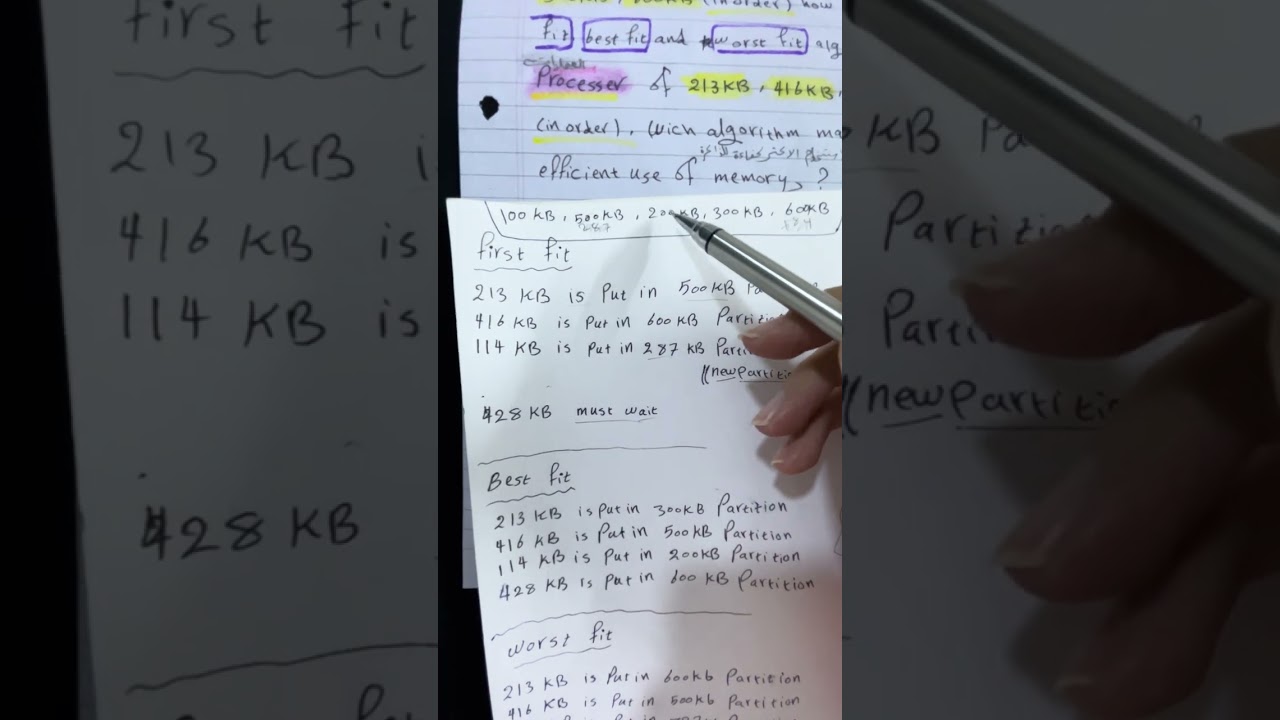 600KB (in order) how
fit, best fit and worst fit alg
Processer of 213KB, 416KB,
(in order), Wich algorithm ma
efficient use of memory, ?
100 KB, 500KB, 200KB, 300KB, 600KB
287
first fit
213 KB is Put in 500KB Pa
416 KB is Put in 600KB Partiti
114 KB is Put in 287 KB Parti
((new Partitio
428 KB must wait
Best fit
213 KB is Put in 300KB Partition
416 KB is Put in 500KB Partition
114 KB is Put in 200KB Partition
428 KB is Put in 600 KB Partition
worst fit
213 KB is Put in 600kb Partition
416 KB is Put in 500kb Partition